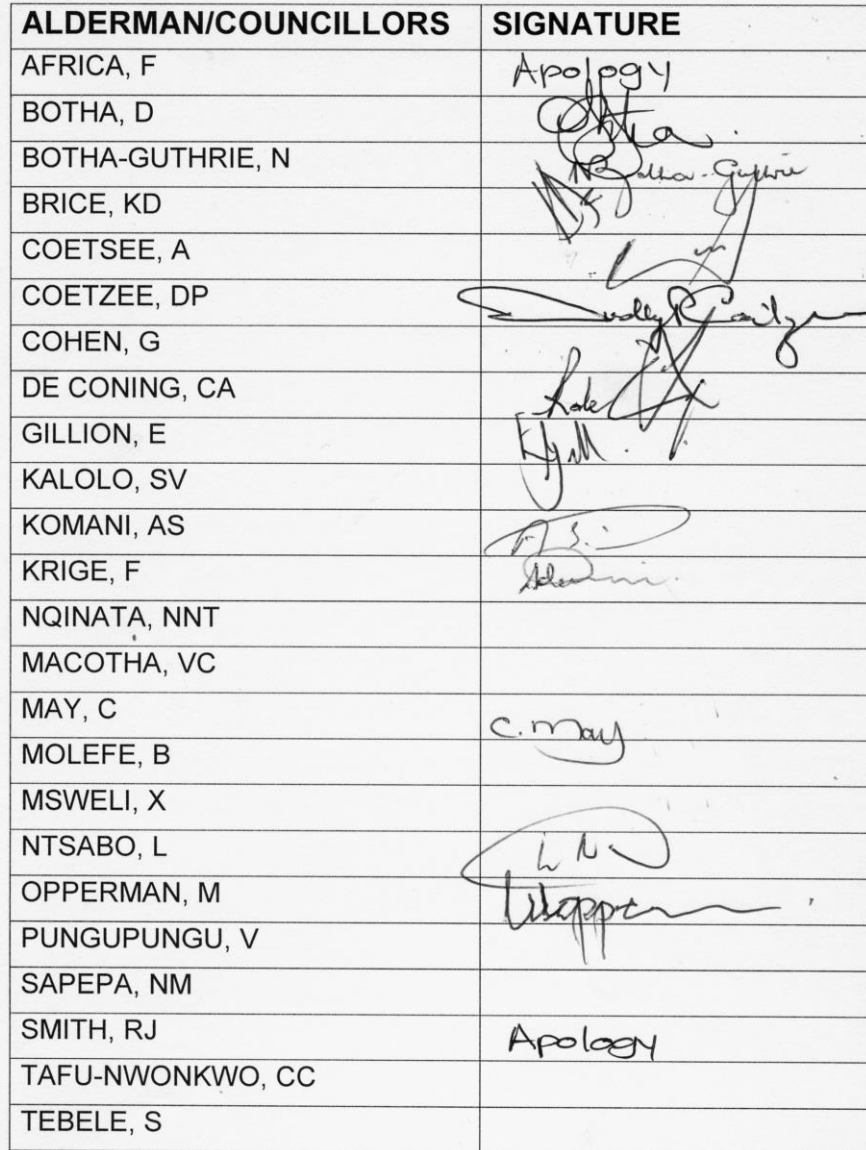 ALDERMAN/COUNCILLORS SIGNATURE
AFRICA, F Apology
BOTHA, D
BOTHA-GUTHRIE, N NBotha-Guthrie
BRICE, KD
COETSEE, A
COETZEE, DP
COHEN, G
DE CONING, CA
GILLION, E
KALOLO, SV
KOMANI, AS
KRIGE, F
NQINATA, NNT
MACOTHA, VC
MAY, C C. May
MOLEFE, B
MSWELI, X
NTSABO, L L N
OPPERMAN, M
PUNGUPUNGU, V
SAPEPA, NM
SMITH, RJ Apology
TAFU-NWONKWO, CC
TEBELE, S